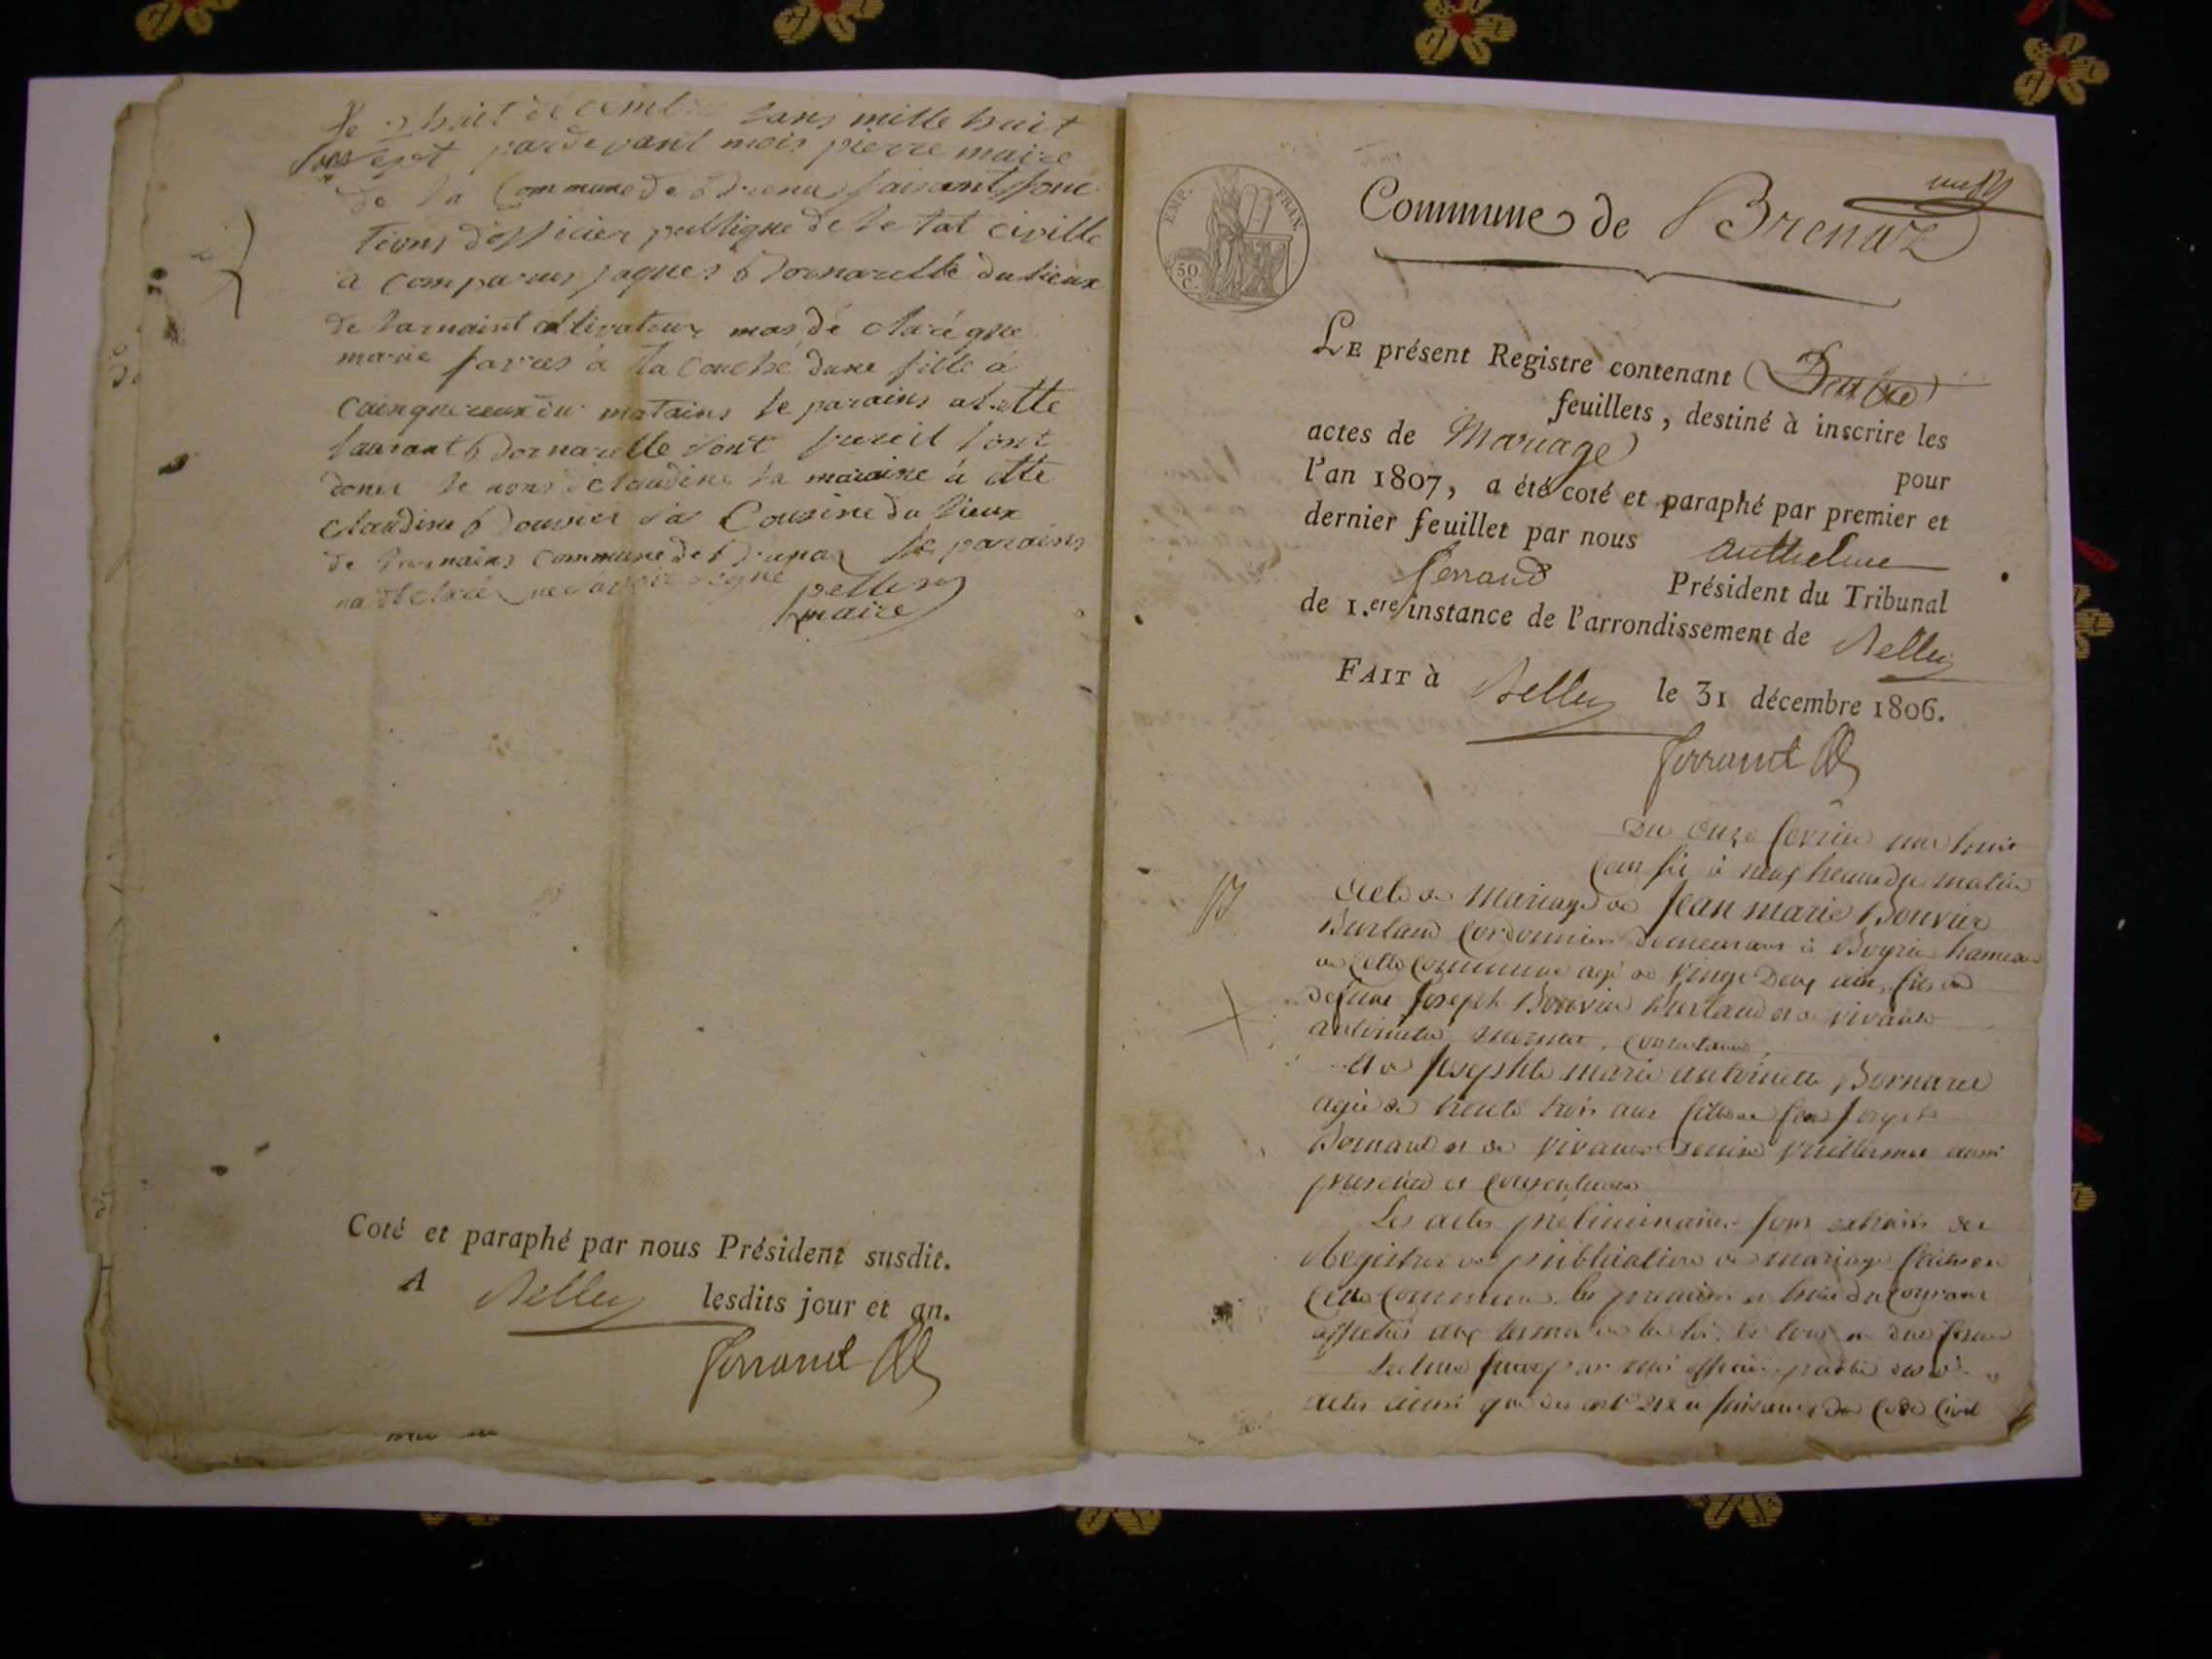 Le huit decembre dans mille huit
sans sept pardevant mois pierre maire
de la Commune de Brena faisant fonc
tions dofficier publique de le tat civille
a comparus jaques Bornarelle du lieux
de Larnaint cultivateur mas dé claré que
marie favres a la couché dune fille á
cainque eure du matains le parains at ette
laurant Bornarelle dont
donér le nons claudine la maraine a ette
claudine Bouvier sa Cousine du lieux
de Larnains commune de Brenas le parains
na déclaré ne savoir signe
pettex
maire
Coté et paraphé par nous Président susdit.
A Belley lesdits jour et an.
Ferrand
EMP. FRAN.
50 C.
Commune de Brenaz
LE présent Registre contenant Deux
feuillets, destiné à inscrire les
actes de Mariage pour
l'an 1807, a été coté et paraphé par premier et
dernier feuillet par nous Anthelme
ferrand Président du Tribunal
de 1.ere instance de l'arrondissement de Belley
FAIT à Belley le 31 décembre 1806.
Ferrand
Du onze fevrier mil huit
cent six à neuf heures du matin
Acte de Mariage de Jean marie Bouvier
Burland Cordonnier demeurant à hameau
de Cette Commune agé de vingt Deux ans, fils de
defunt Joseph Bouvier Burland et de vivante
antoinette
Et de Josephte marie antoinette Bornarel
agée de trente trois ans fille de feu Joseph
Bornarel et de vivante Denise Vuillermet aussi
presente et Consentante
Les actes préliminaires sont extraits des
Registres de publication de mariage faites en
Cette Commune les premier et huit du Courant
affichés aux termes de la loi, le tout en due forme
Lecture faite par moi officier public desd.
actes ainsi que des art. 212 et suivants du Code Civil